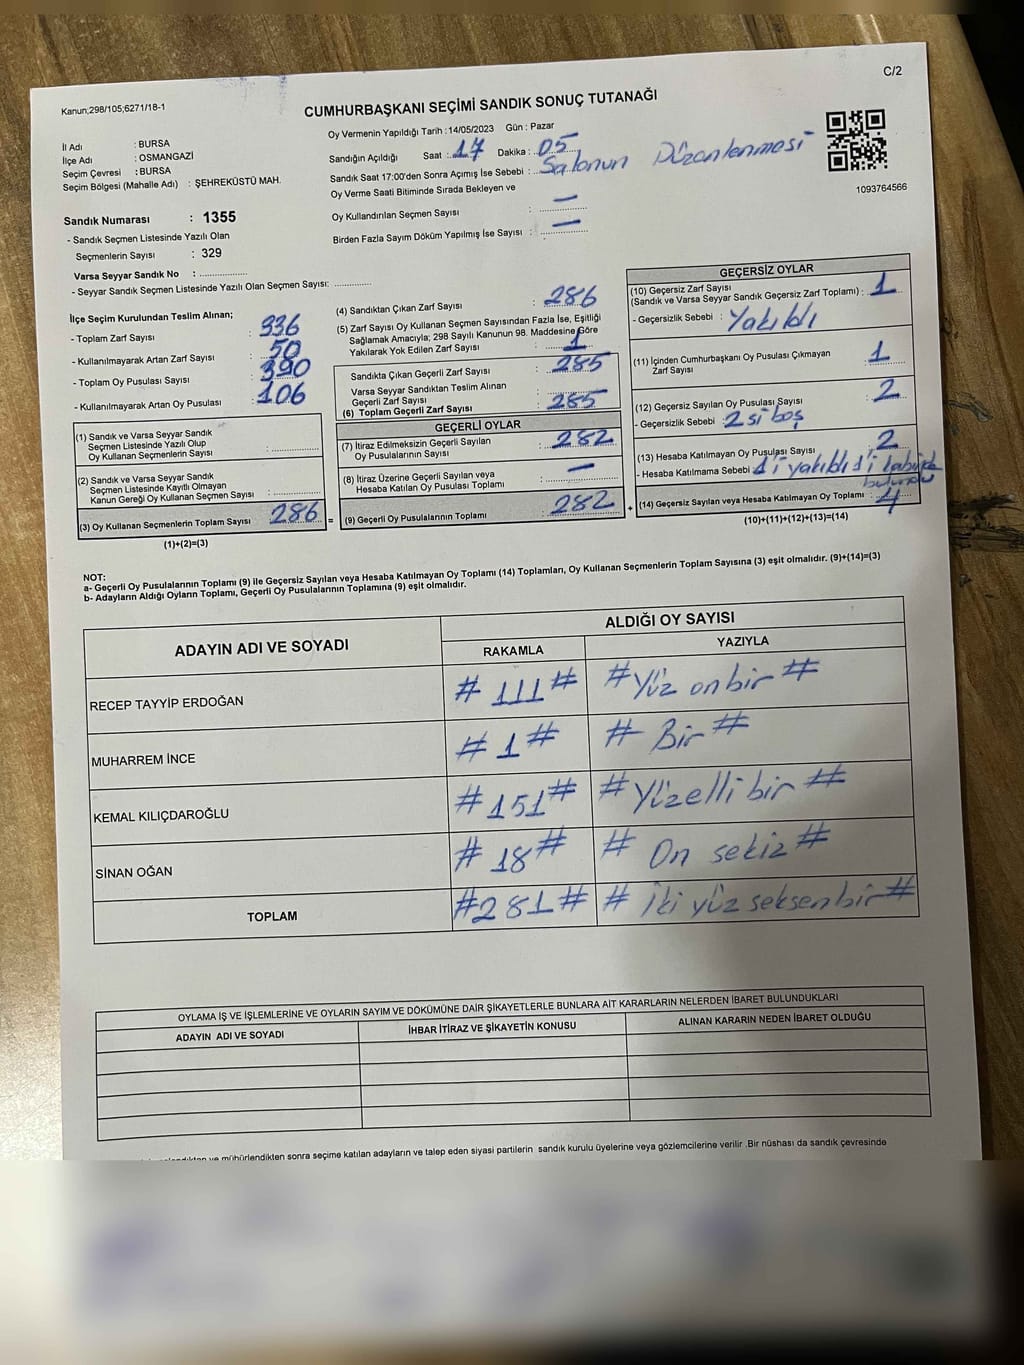 C/2
Kanun;298/105;6271/18-1
CUMHURBAŞKANI SEÇİMİ SANDIK SONUÇ TUTANAĞI
İl Adı : BURSA
İlçe Adı : OSMANGAZİ
Seçim Çevresi : BURSA
Seçim Bölgesi (Mahalle Adı) : ŞEHREKÜSTÜ MAH.
Oy Vermenin Yapıldığı Tarih : 14/05/2023 Gün : Pazar
Sandığın Açıldığı Saat : 17 Dakika : 05
Sandık Saat 17:00'den Sonra Açımış İse Sebebi : Salonun Düzenlenmesi
Oy Verme Saati Bitiminde Sırada Bekleyen ve
Oy Kullandırılan Seçmen Sayısı : —
Birden Fazla Sayım Döküm Yapılmış İse Sayısı : —
1093764566
Sandık Numarası : 1355
- Sandık Seçmen Listesinde Yazılı Olan
Seçmenlerin Sayısı : 329
Varsa Seyyar Sandık No : ..................
- Seyyar Sandık Seçmen Listesinde Yazılı Olan Seçmen Sayısı: ..............
İlçe Seçim Kurulundan Teslim Alınan;
- Toplam Zarf Sayısı : 336
- Kullanılmayarak Artan Zarf Sayısı : 50
- Toplam Oy Pusulası Sayısı : 390
- Kullanılmayarak Artan Oy Pusulası : 106
(1) Sandık ve Varsa Seyyar Sandık
Seçmen Listesinde Yazılı Olup
Oy Kullanan Seçmenlerin Sayısı : ..............
(2) Sandık ve Varsa Seyyar Sandık
Seçmen Listesinde Kayıtlı Olmayan
Kanun Gereği Oy Kullanan Seçmen Sayısı : ..............
(3) Oy Kullanan Seçmenlerin Toplam Sayısı : 286 =
(1)+(2)=(3)
(4) Sandıktan Çıkan Zarf Sayısı : 286
(5) Zarf Sayısı Oy Kullanan Seçmen Sayısından Fazla İse, Eşitliği
Sağlamak Amacıyla; 298 Sayılı Kanunun 98. Maddesine Göre
Yakılarak Yok Edilen Zarf Sayısı : 1
Sandıkta Çıkan Geçerli Zarf Sayısı : 285
Varsa Seyyar Sandıktan Teslim Alınan
Geçerli Zarf Sayısı
(6) Toplam Geçerli Zarf Sayısı : 285
GEÇERLİ OYLAR
(7) İtiraz Edilmeksizin Geçerli Sayılan
Oy Pusulasının Sayısı : 282
(8) İtiraz Üzerine Geçerli Sayılan veya
Hesaba Katılan Oy Pusulası Toplamı : —
(9) Geçerli Oy Pusulalarının Toplamı : 282 +
GEÇERSİZ OYLAR
(10) Geçersiz Zarf Sayısı
(Sandık ve Varsa Seyyar Sandık Geçersiz Zarf Toplamı) : 1
- Geçersizlik Sebebi : Yakıldı
(11) İçinden Cumhurbaşkanı Oy Pusulası Çıkmayan
Zarf Sayısı : 1
(12) Geçersiz Sayılan Oy Pusulası Sayısı : 2
- Geçersizlik Sebebi : 2 si boş
(13) Hesaba Katılmayan Oy Pusulası Sayısı : 2
- Hesaba Katılmama Sebebi : 1'i yakıldı 1'i kabinde
bulundu
(14) Geçersiz Sayılan veya Hesaba Katılmayan Oy Toplamı : 4
(10)+(11)+(12)+(13)=(14)
NOT:
a- Geçerli Oy Pusulalarının Toplamı (9) ile Geçersiz Sayılan veya Hesaba Katılmayan Oy Toplamı (14) Toplamları, Oy Kullanan Seçmenlerin Toplam Sayısına (3) eşit olmalıdır. (9)+(14)=(3)
b- Adayların Aldığı Oyların Toplamı, Geçerli Oy Pusulalarının Toplamına (9) eşit olmalıdır.
ADAYIN ADI VE SOYADI ALDIĞI OY SAYISI
RAKAMLA YAZIYLA
RECEP TAYYİP ERDOĞAN # 111 # # Yüz onbir #
MUHARREM İNCE # 1 # # Bir #
KEMAL KILIÇDAROĞLU # 151 # # Yüzelli bir #
SİNAN OĞAN # 18 # # On sekiz #
TOPLAM # 281 # # İki yüz seksenbir #
OYLAMA İŞ VE İŞLEMLERİNE VE OYLARIN SAYIM VE DÖKÜMÜNE DAİR ŞİKAYETLERLE BUNLARA AİT KARARLARIN NELERDEN İBARET BULUNDUKLARI
ADAYIN ADI VE SOYADI İHBAR İTİRAZ VE ŞİKAYETİN KONUSU ALINAN KARARIN NEDEN İBARET OLDUĞU
ve mühürlendikten sonra seçime katılan adayların ve talep eden siyasi partilerin sandık kurulu üyelerine veya gözlemcilerine verilir .Bir nüshası da sandık çevresinde